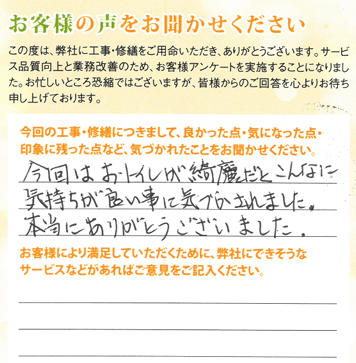 お客様の声をお聞かせください
この度は、弊社に工事・修繕をご用命いただき、ありがとうございます。サービ
ス品質向上と業務改善のため、お客様アンケートを実施することになりまし
た。お忙しいところ恐縮ではございますが、皆様からのご回答を心よりお待ち
申し上げております。
今回の工事・修繕につきまして、良かった点・気になった点・
印象に残った点など、気づかれたことをお聞かせください。
今回はおトイレが綺麗だとこんなに
気持ちが良い事に気づかされました。
本当にありがとうございました.
お客様により満足していただくために、弊社にできそうな
サービスなどがあればご意見をご記入ください。